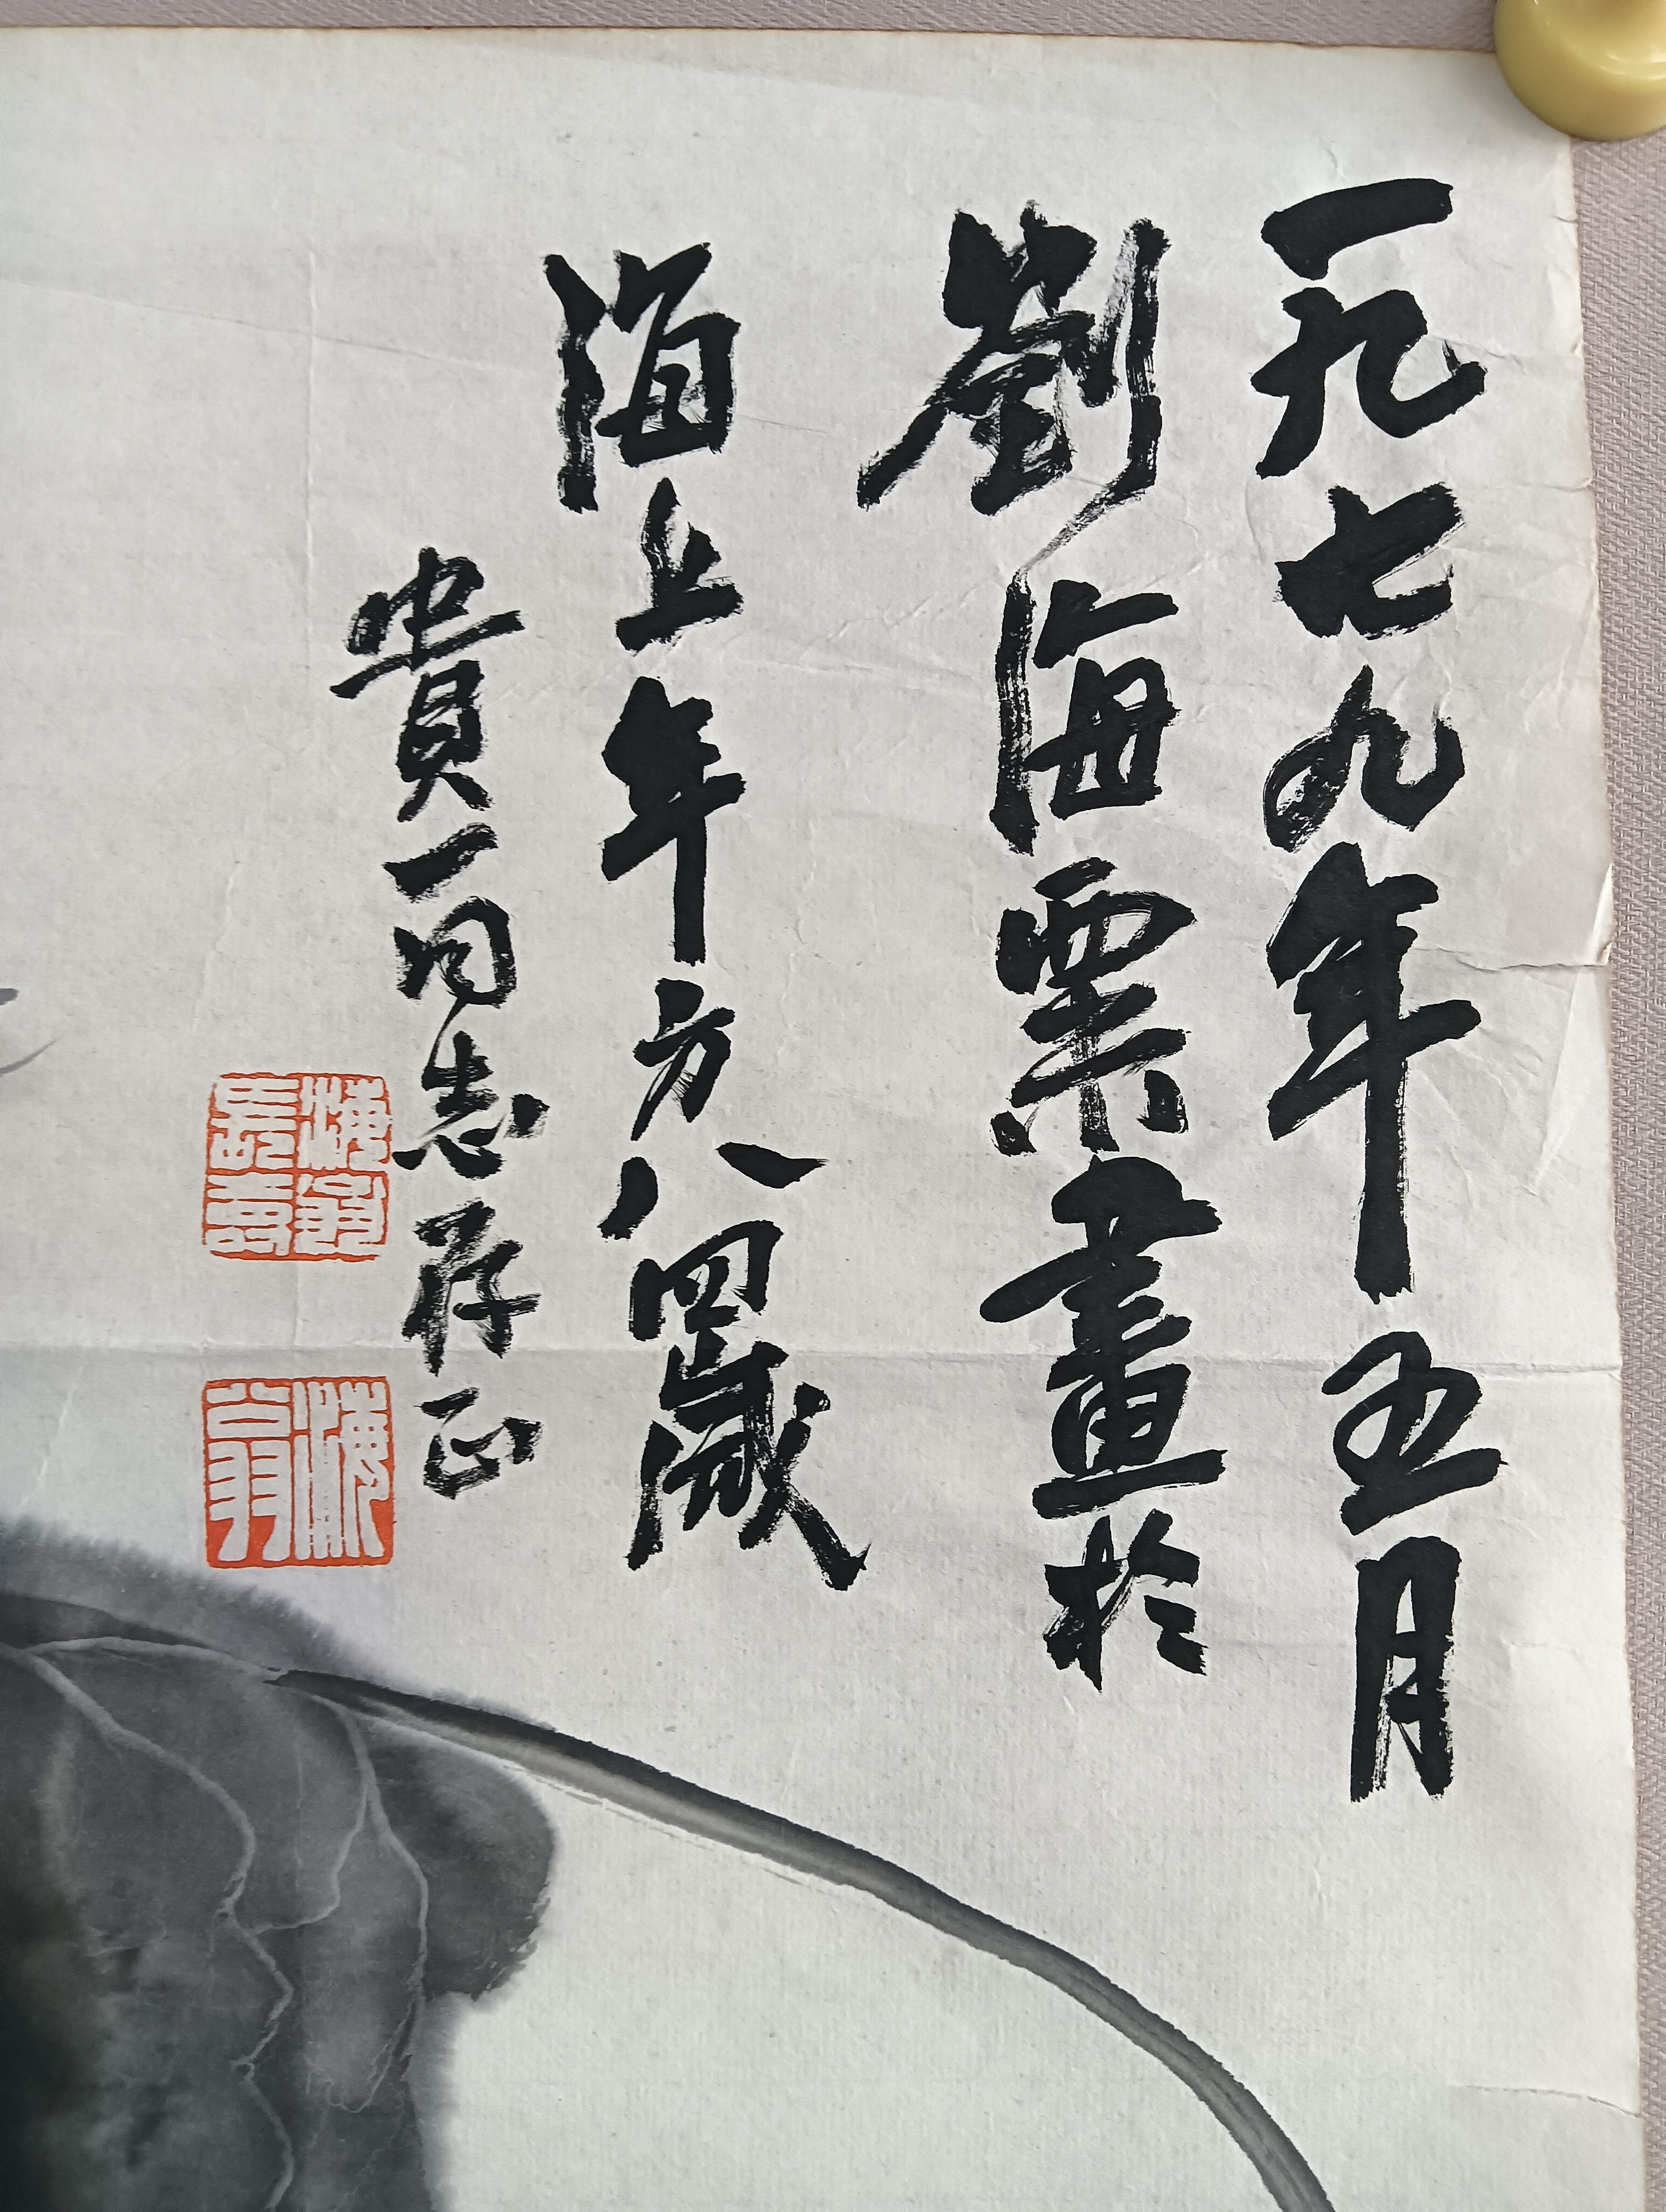 一九七九年五月
劉海粟畫於
海上年方八四歲
貴一同志存正
海翁長壽
海翁